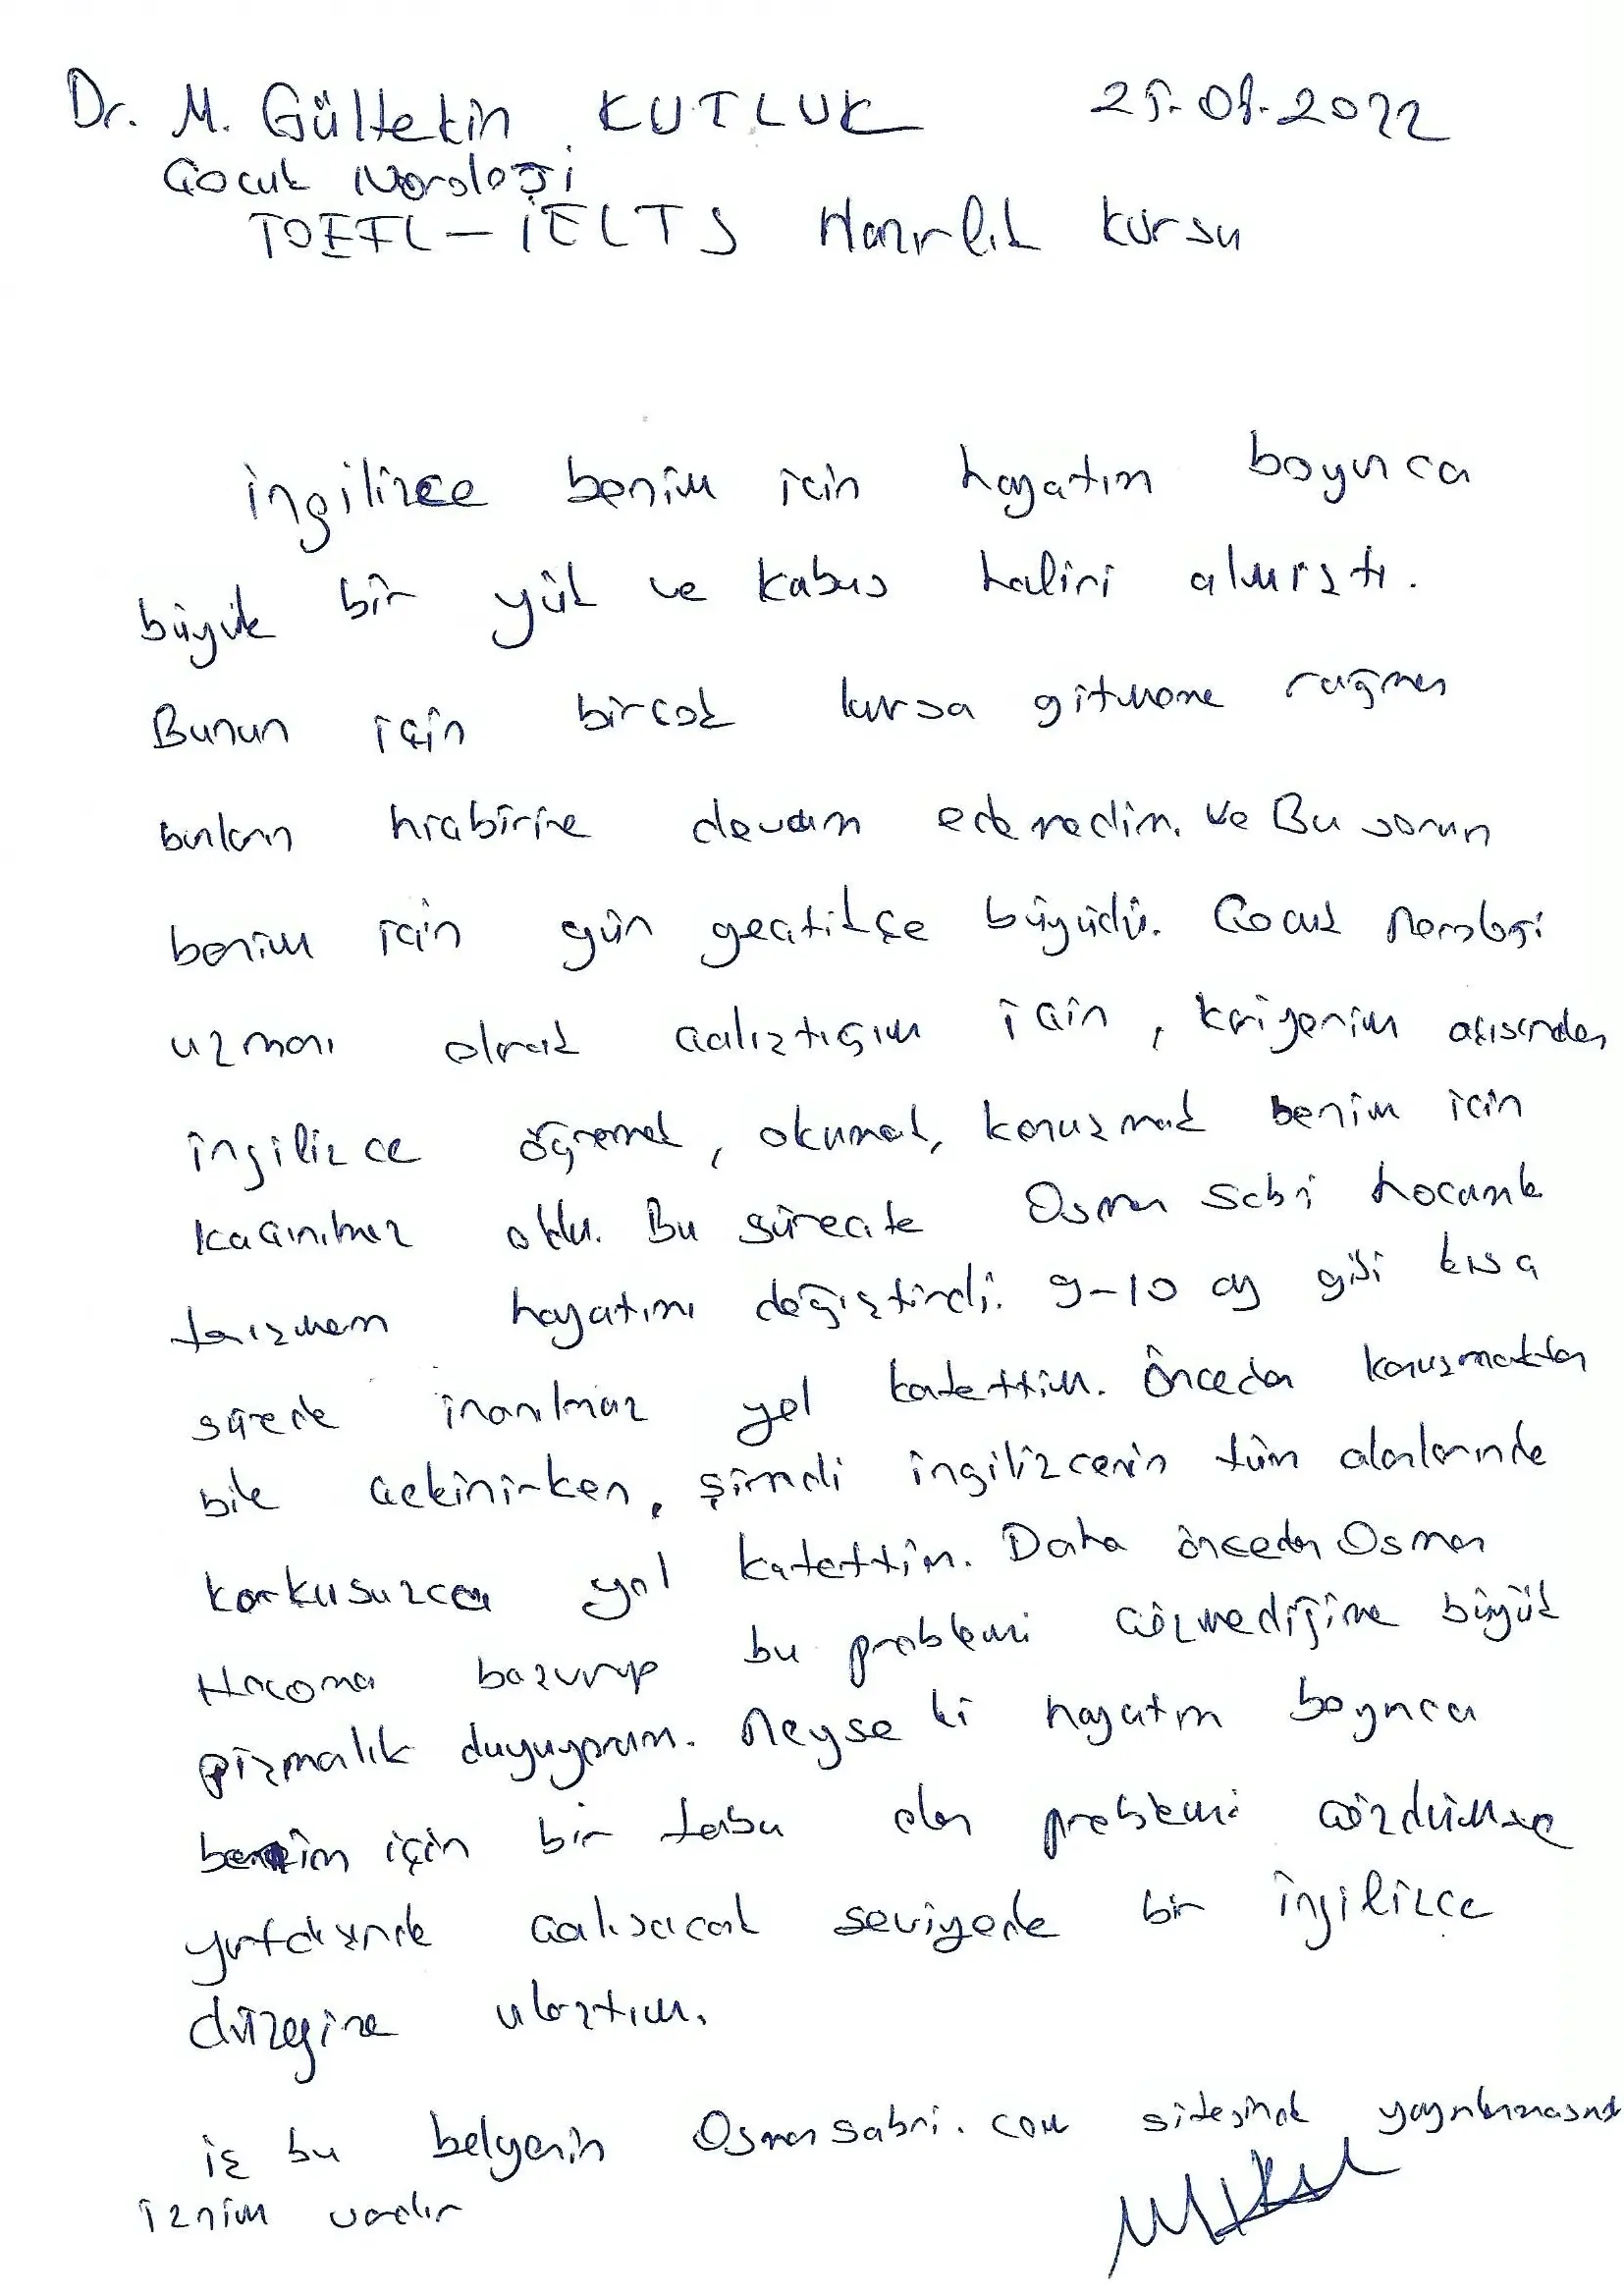 Dr. M. Gültekin KUTLUK 25.08.2022
Çocuk Nöroloji
TOEFL - İELTS Hazırlık Kursu
İngilizce benim için hayatım boyunca
büyük bir yük ve kabus halini almıştı.
Bunun için birçok kursa gitmeme rağmen
bunların hiçbirine devam edemedim. Ve Bu sorun
benim için gün geçtikçe büyüdü. Çocuk Nöroloji
uzmanı olarak çalıştığım için, kariyerim açısından
ingilizce öğrenmek, okumak, konuşmak benim için
kaçınılmaz oldu. Bu süreçte Osman Sabri hocamla
tanışmam hayatımı değiştirdi. 9-10 ay gibi kısa
sürede inanılmaz yol katettim. Önceden konuşmaktan
bile çekinirken, şimdi ingilizcenin tüm alanlarında
korkusuzca yol katettim. Daha önceden Osman
Hocama başvurup bu problemi çözmediğime büyük
pişmalık duyuyorum. Neyse ki hayatım boyunca
benim için bir tabu olan problemi çözdüm ve
yurtdışında çalışacak seviyede bir ingilizce
düzeyine ulaştım.
iş bu belgenin Osmansabri.com sitesinde yayınlanmasına
iznim vardır